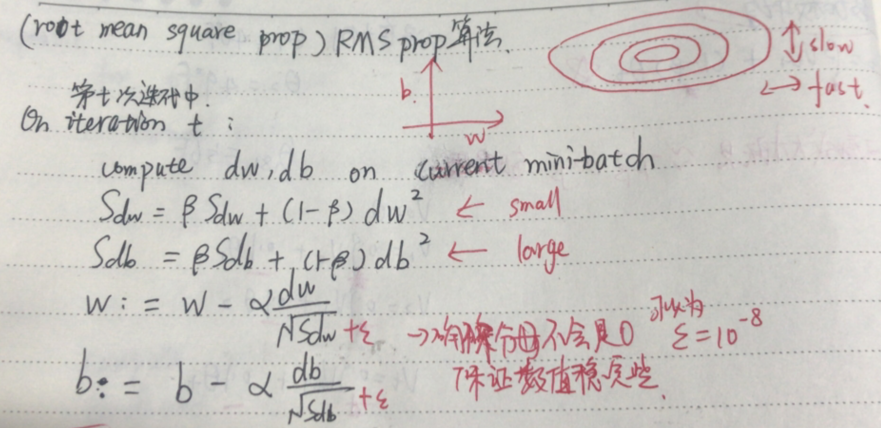 (root mean square prop) RMS prop算法.
slow
fast.
b.
w
第t次迭代中.
On iteration t:
compute dw, db on current mini-batch
Sdw = βSdw + (1-β) dw² ← small
Sdb = βSdb + (1-β) db² ← large
w := w - α dw/√Sdw +ε → 确保分母不会是0 可以为 ε=10⁻⁸
b := b - α db/√Sdb +ε 保证数值稳定些.